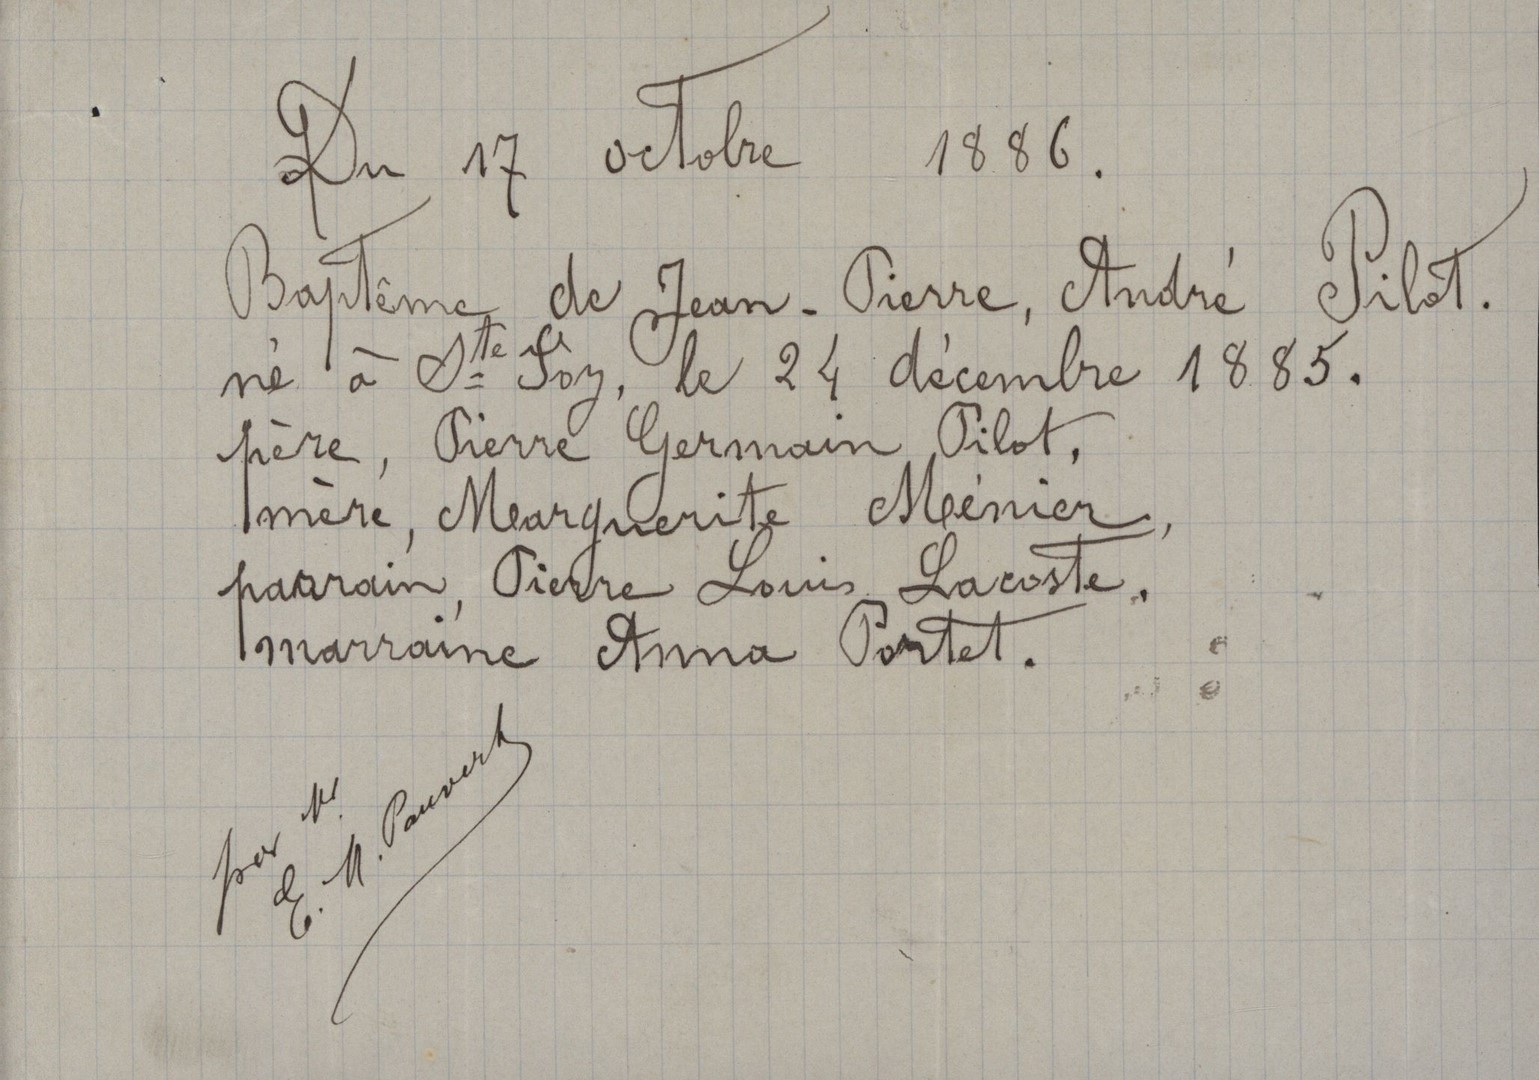 Du 17 octobre 1886.
Baptême de Jean-Pierre, André Pilot.
né à Ste Foy, le 24 décembre 1885.
père, Pierre Germain Pilot,
mère, Marguerite Ménier,
parrain, Pierre Louis Lacoste.
marraine Anna Portet.
par Mr.
E. M. Pauvert